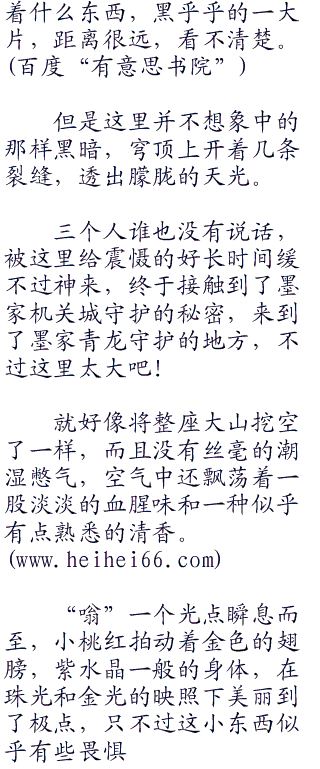 着什么东西，黑乎乎的一大
片，距离很远，看不清楚。
(百度“有意思书院”)
但是这里并不想象中的
那样黑暗，穹顶上开着几条
裂缝，透出朦胧的天光。
三个人谁也没有说话，
被这里给震慑的好长时间缓
不过神来，终于接触到了墨
家机关城守护的秘密，来到
了墨家青龙守护的地方，不
过这里太大吧！
就好像将整座大山挖空
了一样，而且没有丝毫的潮
湿憋气，空气中还飘荡着一
股淡淡的血腥味和一种似乎
有点熟悉的清香。
(www.heihei66.com)
“嗡”一个光点瞬息而
至，小桃红拍动着金色的翅
膀，紫水晶一般的身体，在
珠光和金光的映照下美丽到
了极点，只不过这小东西似
乎有些畏惧